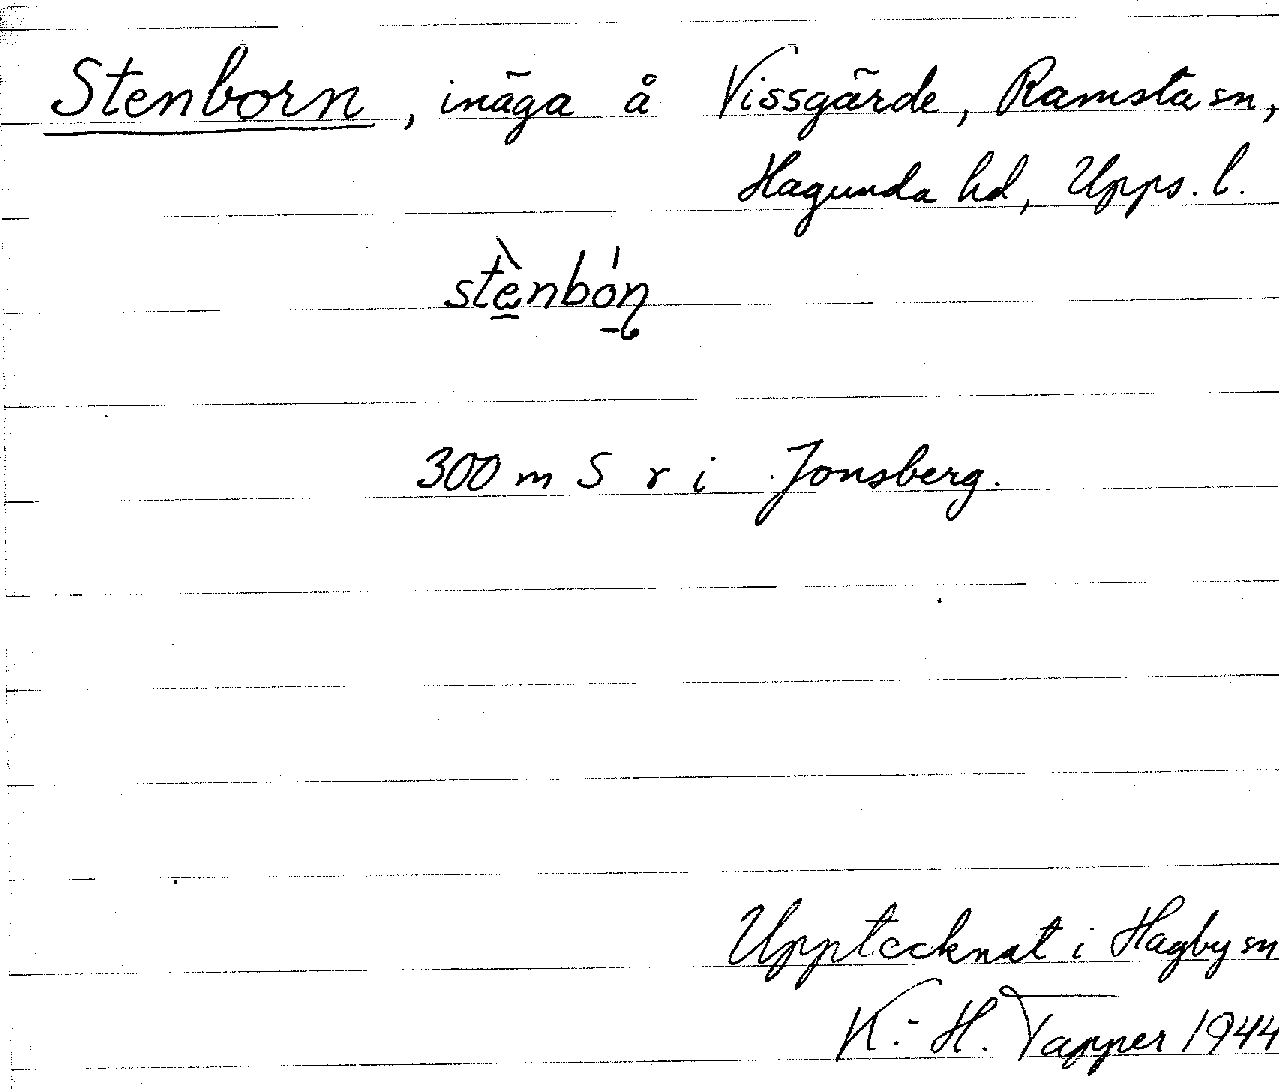 Stenborn, inäga å Vissgärde, Ramsta sn,
Hagunda hd, Upps. l.
stè̠nbó̠ɳ
300 m S r i Jonsberg.
Upptecknat i Hagby sn
K.-H. Tapper 1944